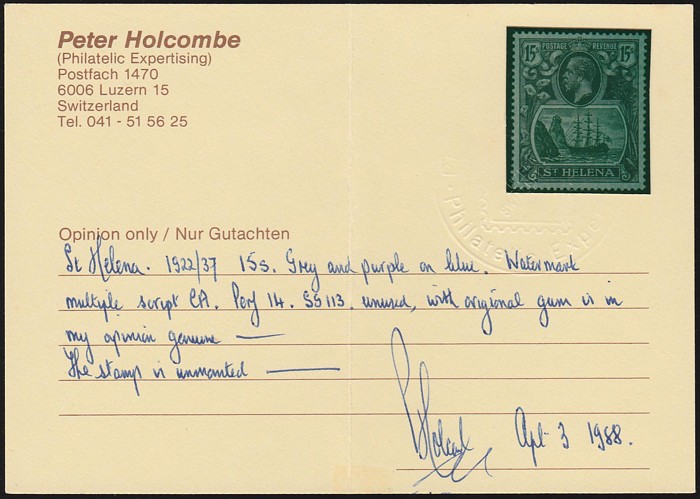 Peter Holcombe
(Philatelic Expertising)
Postfach 1470
6006 Luzern 15
Switzerland
Tel. 041 - 51 56 25
15/- POSTAGE REVENUE 15/-
ST HELENA
Opinion only / Nur Gutachten
St Helena. 1922/37 15s. Grey and purple on blue. Watermark
multiple script CA. Perf 14. SG 113. unused, with original gum is in
my opinion genuine —
The stamp is unmounted —
Holcombe Apl 3 1988.